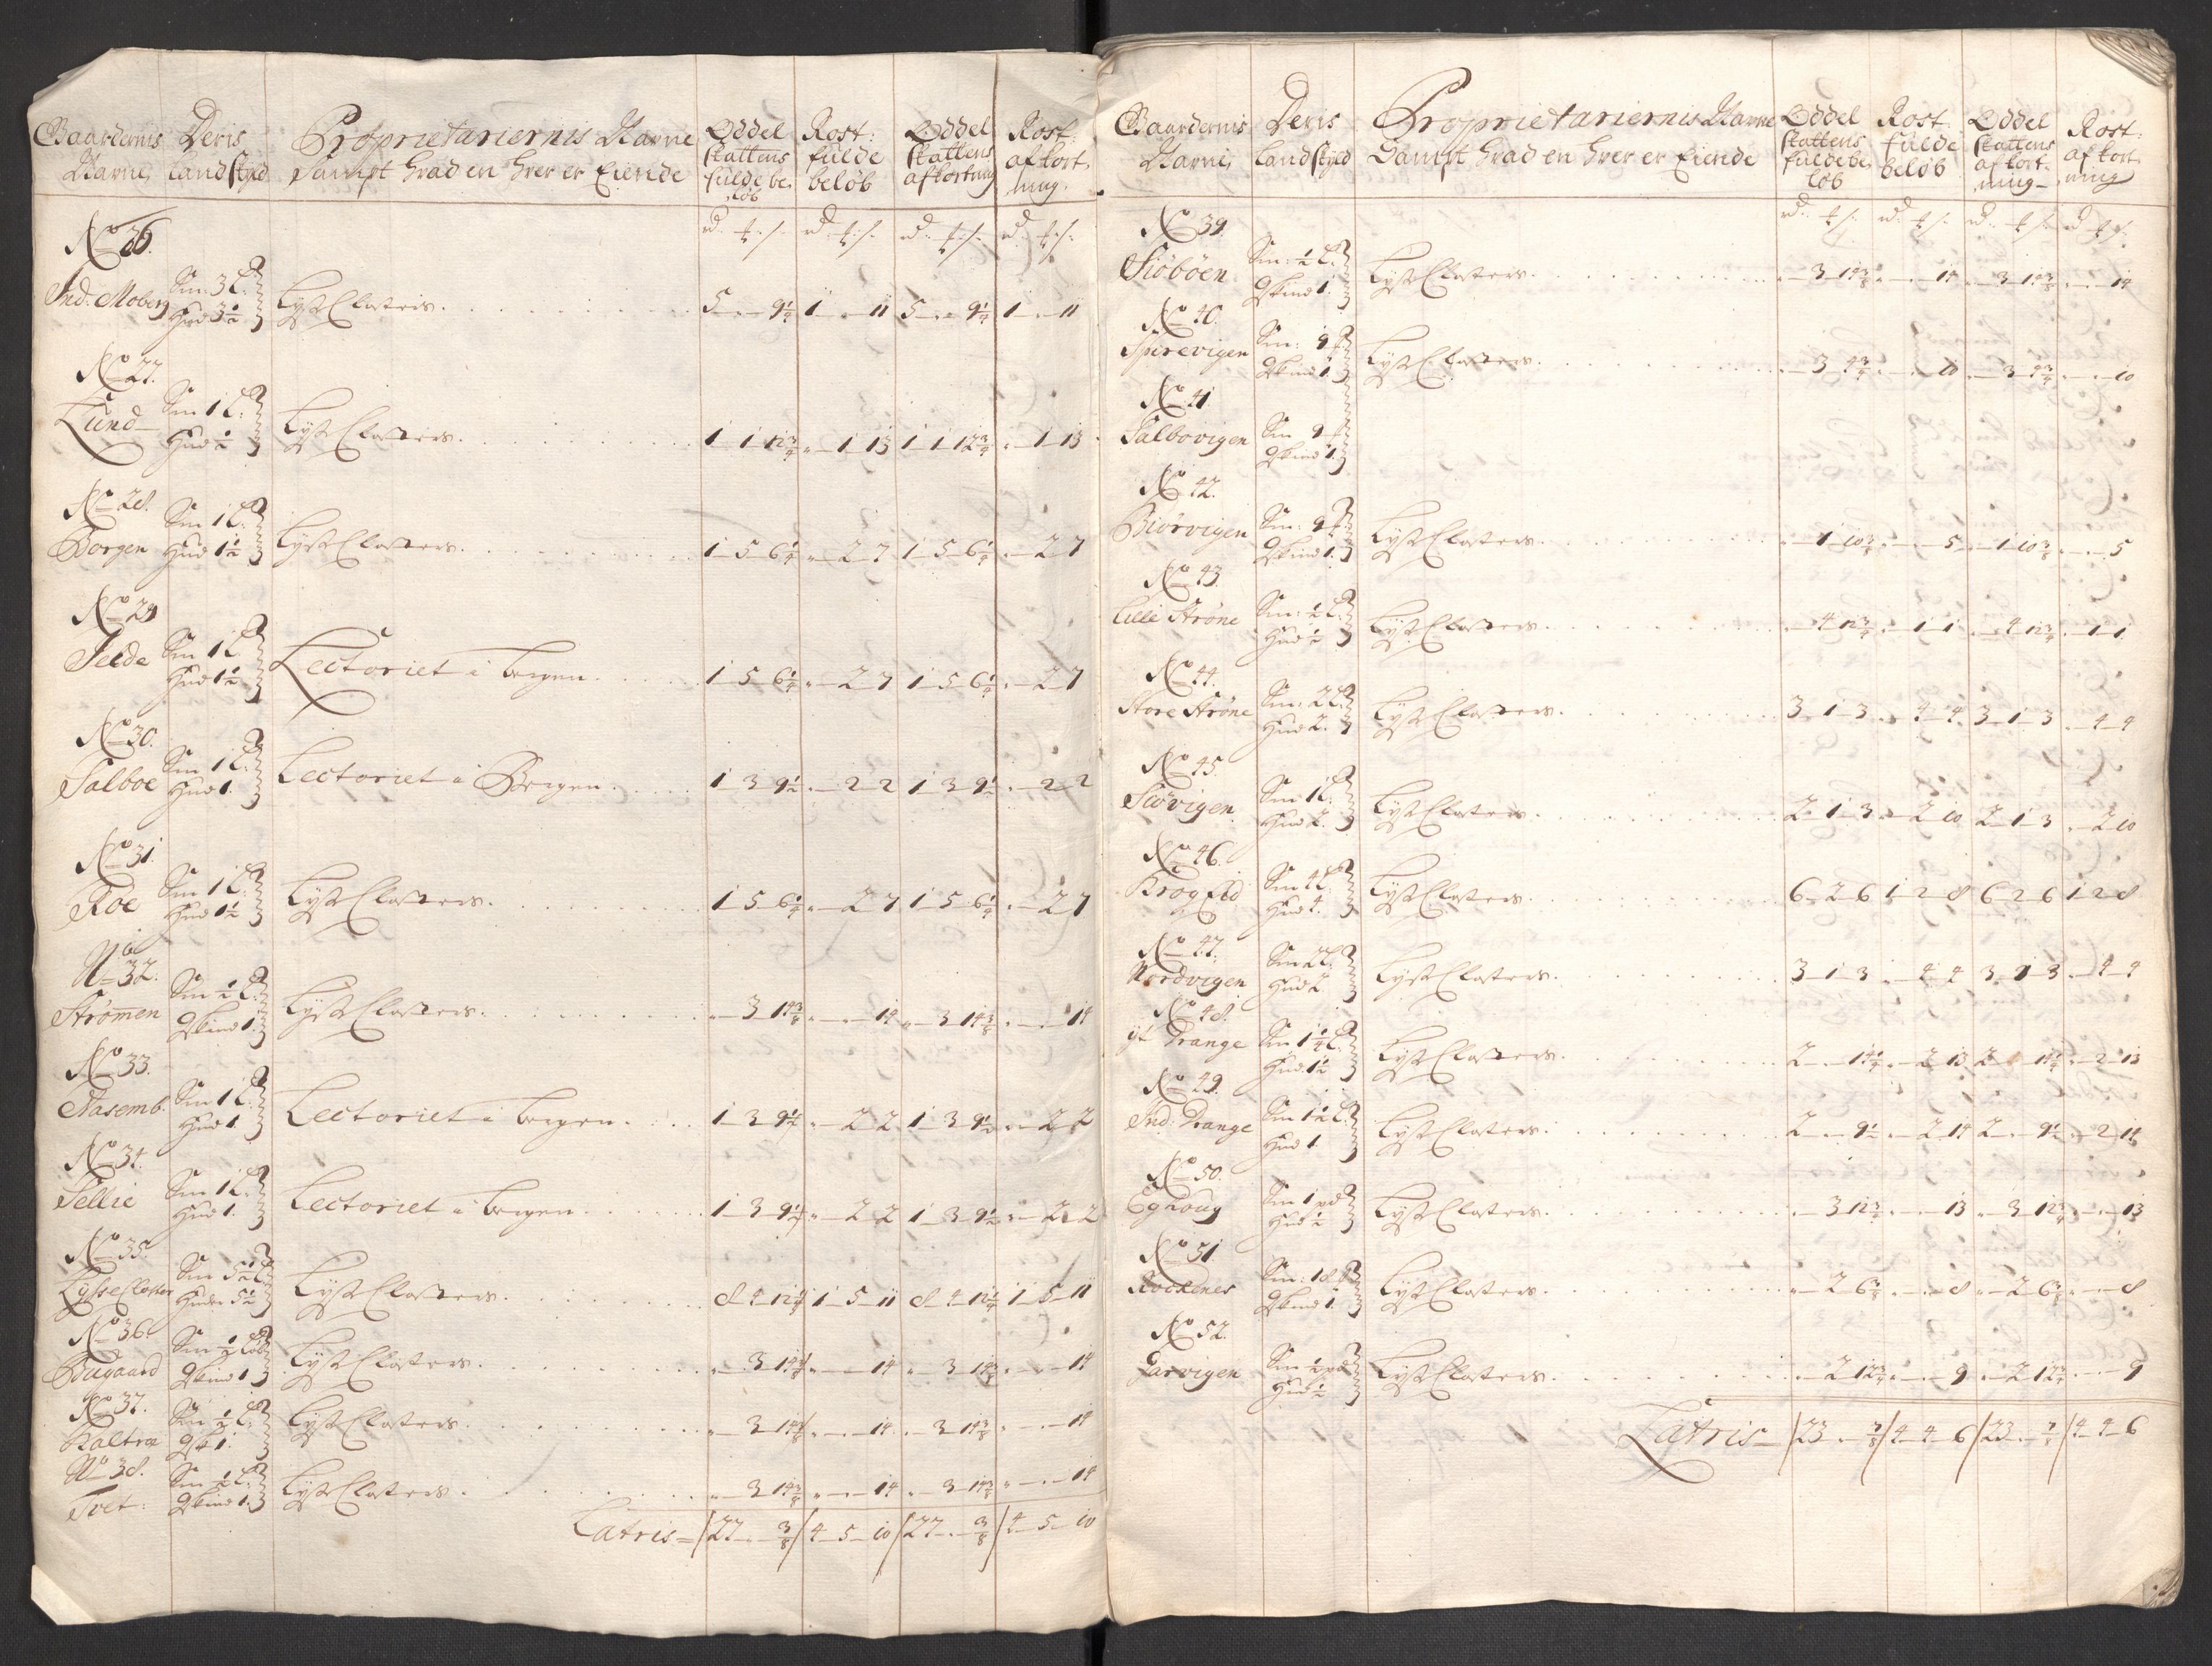 Gaardernis Nafne
Deris Landskyld
Proprietariernis Nafne Sampt hvad en hver er Eiende
Oddel skattens fulde be løb
Rost: fulde beløb
Oddel skattens afkortning
Rost: afkortning.
rd: ƒ: s: rd: ƒ: s: rd: ƒ: s: rd: ƒ: s:
No 26.
Ind: Moberg Sm: 3 L: Hud 3½ LyseClosters. 5 - " - 9¼ 1 - " - 11 5 - " - 9¼ 1 - " - 11
No 27.
Lund Sm 1 L: Hud ½ LyseClosters. 1 - 1 - 12¾ " - 1 - 13 1 - 1 - 12¾ " - 1 - 13
No 28.
Borgen Sm 1 L: Hud 1½ LyseClosters. 1 - 5 - 6¼ " - 2 - 7 1 - 5 - 6¼ " - 2 - 7
No 29
Hud 1½ Sm 1 L Lectoriet i bergen. 1 - 5 - 6¼ " - 2 - 7 1 - 5 - 6¼ " - 2 - 7
No 30.
Salboe Sm 1 L: Hud 1. Lectoriet i Bergen. 1 - 3 - 9½ " - 2 - 2 1 - 3 - 9½ " - 2 - 2
No 31.
Roe Sm 1 L: Hud 1½ LyseClosters. 1 - 5 - 6¼ " - 2 - 7 1 - 5 - 6¼ " - 2 - 7
No 32.
Strømen Sm ½ L: Gskind 1. LyseClosters. " - 3 - 14⅜ " - " - 14 " - 3 - 14⅜ " - " - 14
No 33.
Aasemb. Sm 1 L: Hud 1. Lectoriet i bergen. 1 - 3 - 9½ " - 2 - 2 1 - 3 - 9½ " - 2 - 2
No 34.
Sellie Sm 1 L: Hud 1. Lectoriet i bergen. 1 - 3 - 9½ " - 2 - 2 1 - 3 - 9½ " - 2 - 2
No 35.
LysseCloster Sm 5½ L: Huder 5½ LyseClosters. 8 - 4 - 12¼ 1 - 5 - 11 8 - 4 - 12¼ 1 - 5 - 11
No 36.
Bugaard Sm ½ Løb Gskind 1. LyseClosters. " - 3 - 14⅜ " - " - 14 " - 3 - 14⅜ " - " - 14
No 37.
Sm ½ L: Gsk 1. LyseClosters. " - 3 - 14⅜ " - " - 14 " - 3 - 14⅜ " - " - 14
No 38.
Tvet: Sm ½ L: Gskind 1. LyseClosters. " - 3 - 14⅜ " - " - 14 " - 3 - 14⅜ " - " - 14
Latris = 27 - " - ⅜ 4 - 5 - 10 27 - " - ⅜ 4 - 5 - 10
Gaardernis Nafne,
Deris Landskyld
Proprietariernis Nafne Sampt hvad en hver er Eiende
Oddel skattens fulde be løb
Rost: fulde beløb
Oddel skattens afkortning
Rost: afkortning
rd: ƒ: s: rd: ƒ: s: rd: ƒ: s: rd: ƒ: s:
No 39.
Siøbøen Sm: ½ L: Gskind 1. LyseClosters. " - 3 - 14⅜ " - " - 14 " - 3 - 14⅜ " - " - 14
No 40.
Spirevigen Sm: 9 Gskind 1. LyseClosters. " - 3 - 4¾ " - " - 10 " - 3 - 4¾ " - " - 10
No 41.
Salbovigen Sm 9 Gskind 1.
No 42.
Biørvigen Sm: 9 Gskind 1. LyseClosters. " - 1 - 10⅜ " - " - 5 " - 1 - 10⅜ " - " - 5
No 43.
Lille Strøne Sm: ½ L: Hud ½ LyseClosters. " - 4 - 12¾ " - 1 - 1 " - 4 - 12¾ " - 1 - 1
No 44.
Store Strøne Sm: 2 L: Hud 2. LyseClosters. 3 - 1 - 3 " - 4 - 4 3 - 1 - 3 " - 4 - 4
No 45.
Siøvigen Sm 1 L: Hud 2. LyseClosters. 2 - 1 - 3 " - 2 - 10 2 - 1 - 3 " - 2 - 10
No 46.
KrogEid Sm 4 L: Hud 4. LyseClosters. 6 - 2 - 6 1 - 2 - 8 6 - 2 - 6 1 - 2 - 8
No 47.
Nordvigen Sm 2 L: Hud 2 LyseClosters. 3 - 1 - 3 " - 4 - 4 3 - 1 - 3 " - 4 - 4
No 48.
yt Drange Sm 1¼ L: Hud 1½ LyseClosters. 2 - " - 14¼ " - 2 - 13 2 - " - 14¼ " - 2 - 13
No 49.
Ind: Drange Sm 1½ L: Hud 1. LyseClosters. 2 - " - 9½ " - 2 - 14 2 - " - 9½ " - 2 - 14
No 50.
Eghoug Sm 1 pd Hud ½ LyseClosters. " - 3 - 12¾ " - " - 13 " - 3 - 12¾ " - " - 13
No 51
Rockenes Sm: 18 Gskind 1. LyseClosters. " - 2 - 6 " - " - 8 " - 2 - 6 " - " - 8
No 52.
Garvigen Sm ½ pd Hud ½ LyseClosters. " - 2 - 12¾ " - " - 9 " - 2 - 12¾ " - " - 9
Latris = 23 - " - ⅞ 4 - 4 - 6 23 - " - ⅞ 4 - 4 - 6